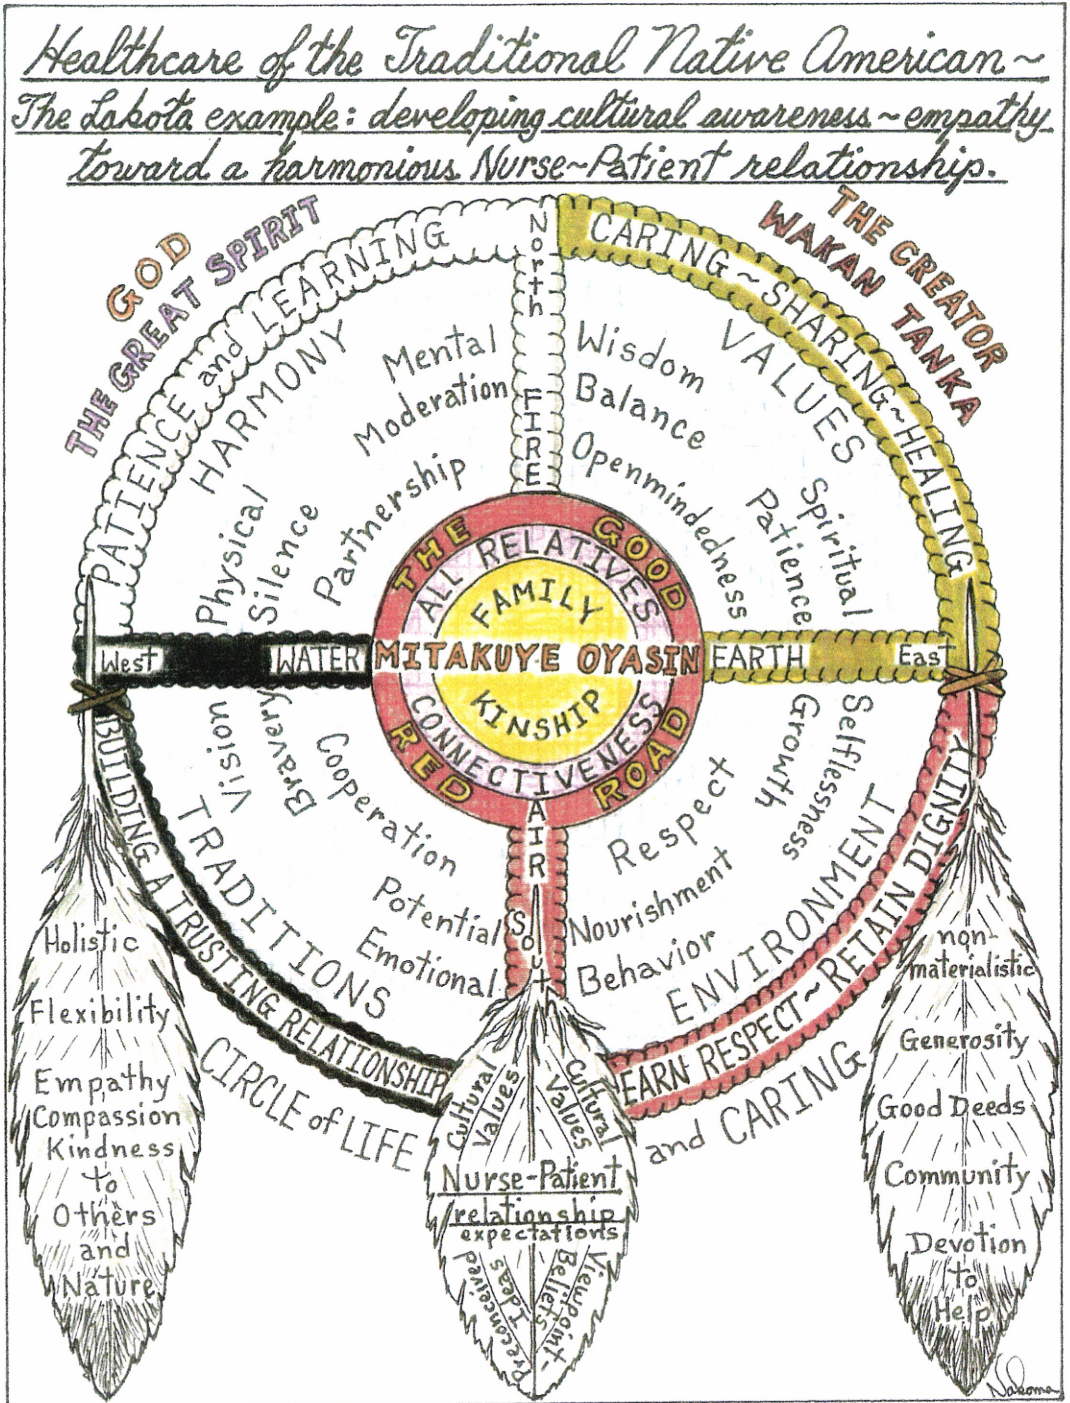 Healthcare of the Traditional Native American~
The Lakota example: developing cultural awareness~empathy
toward a harmonious Nurse~Patient relationship.
GOD
THE GREAT SPIRIT
THE CREATOR
WAKAN TANKA
PATIENCE and LEARNING
CARING~SHARING~HEALING
North
FIRE
HARMONY
Mental
Moderation
Partnership
Physical
Silence
VALUES
Wisdom
Balance
Openmindedness
Spiritual
Patience
THE GOOD
ALL RELATIVES
FAMILY
West
WATER
MITAKUYE OYASIN
EARTH
East
KINSHIP
CONNECTIVENESS
RED ROAD
AIR
South
Vision
Bravery
Cooperation
TRADITIONS
Potential
Emotional
Selflessness
Growth
Respect
Nourishment
Behavior
ENVIRONMENT
BUILDING A TRUSTING RELATIONSHIP
EARN RESPECT~RETAIN DIGNITY
CIRCLE of LIFE
and CARING
Holistic
Flexibility
Empathy
Compassion
Kindness
to
Others
and
Nature
Cultural
Values
Cultural
Values
Nurse-Patient
relationship
expectations
Preconceived
Ideas
Beliefs
Viewpoint-
non-
materialistic
Generosity
Good Deeds
Community
Devotion
to
Help
Nakoma